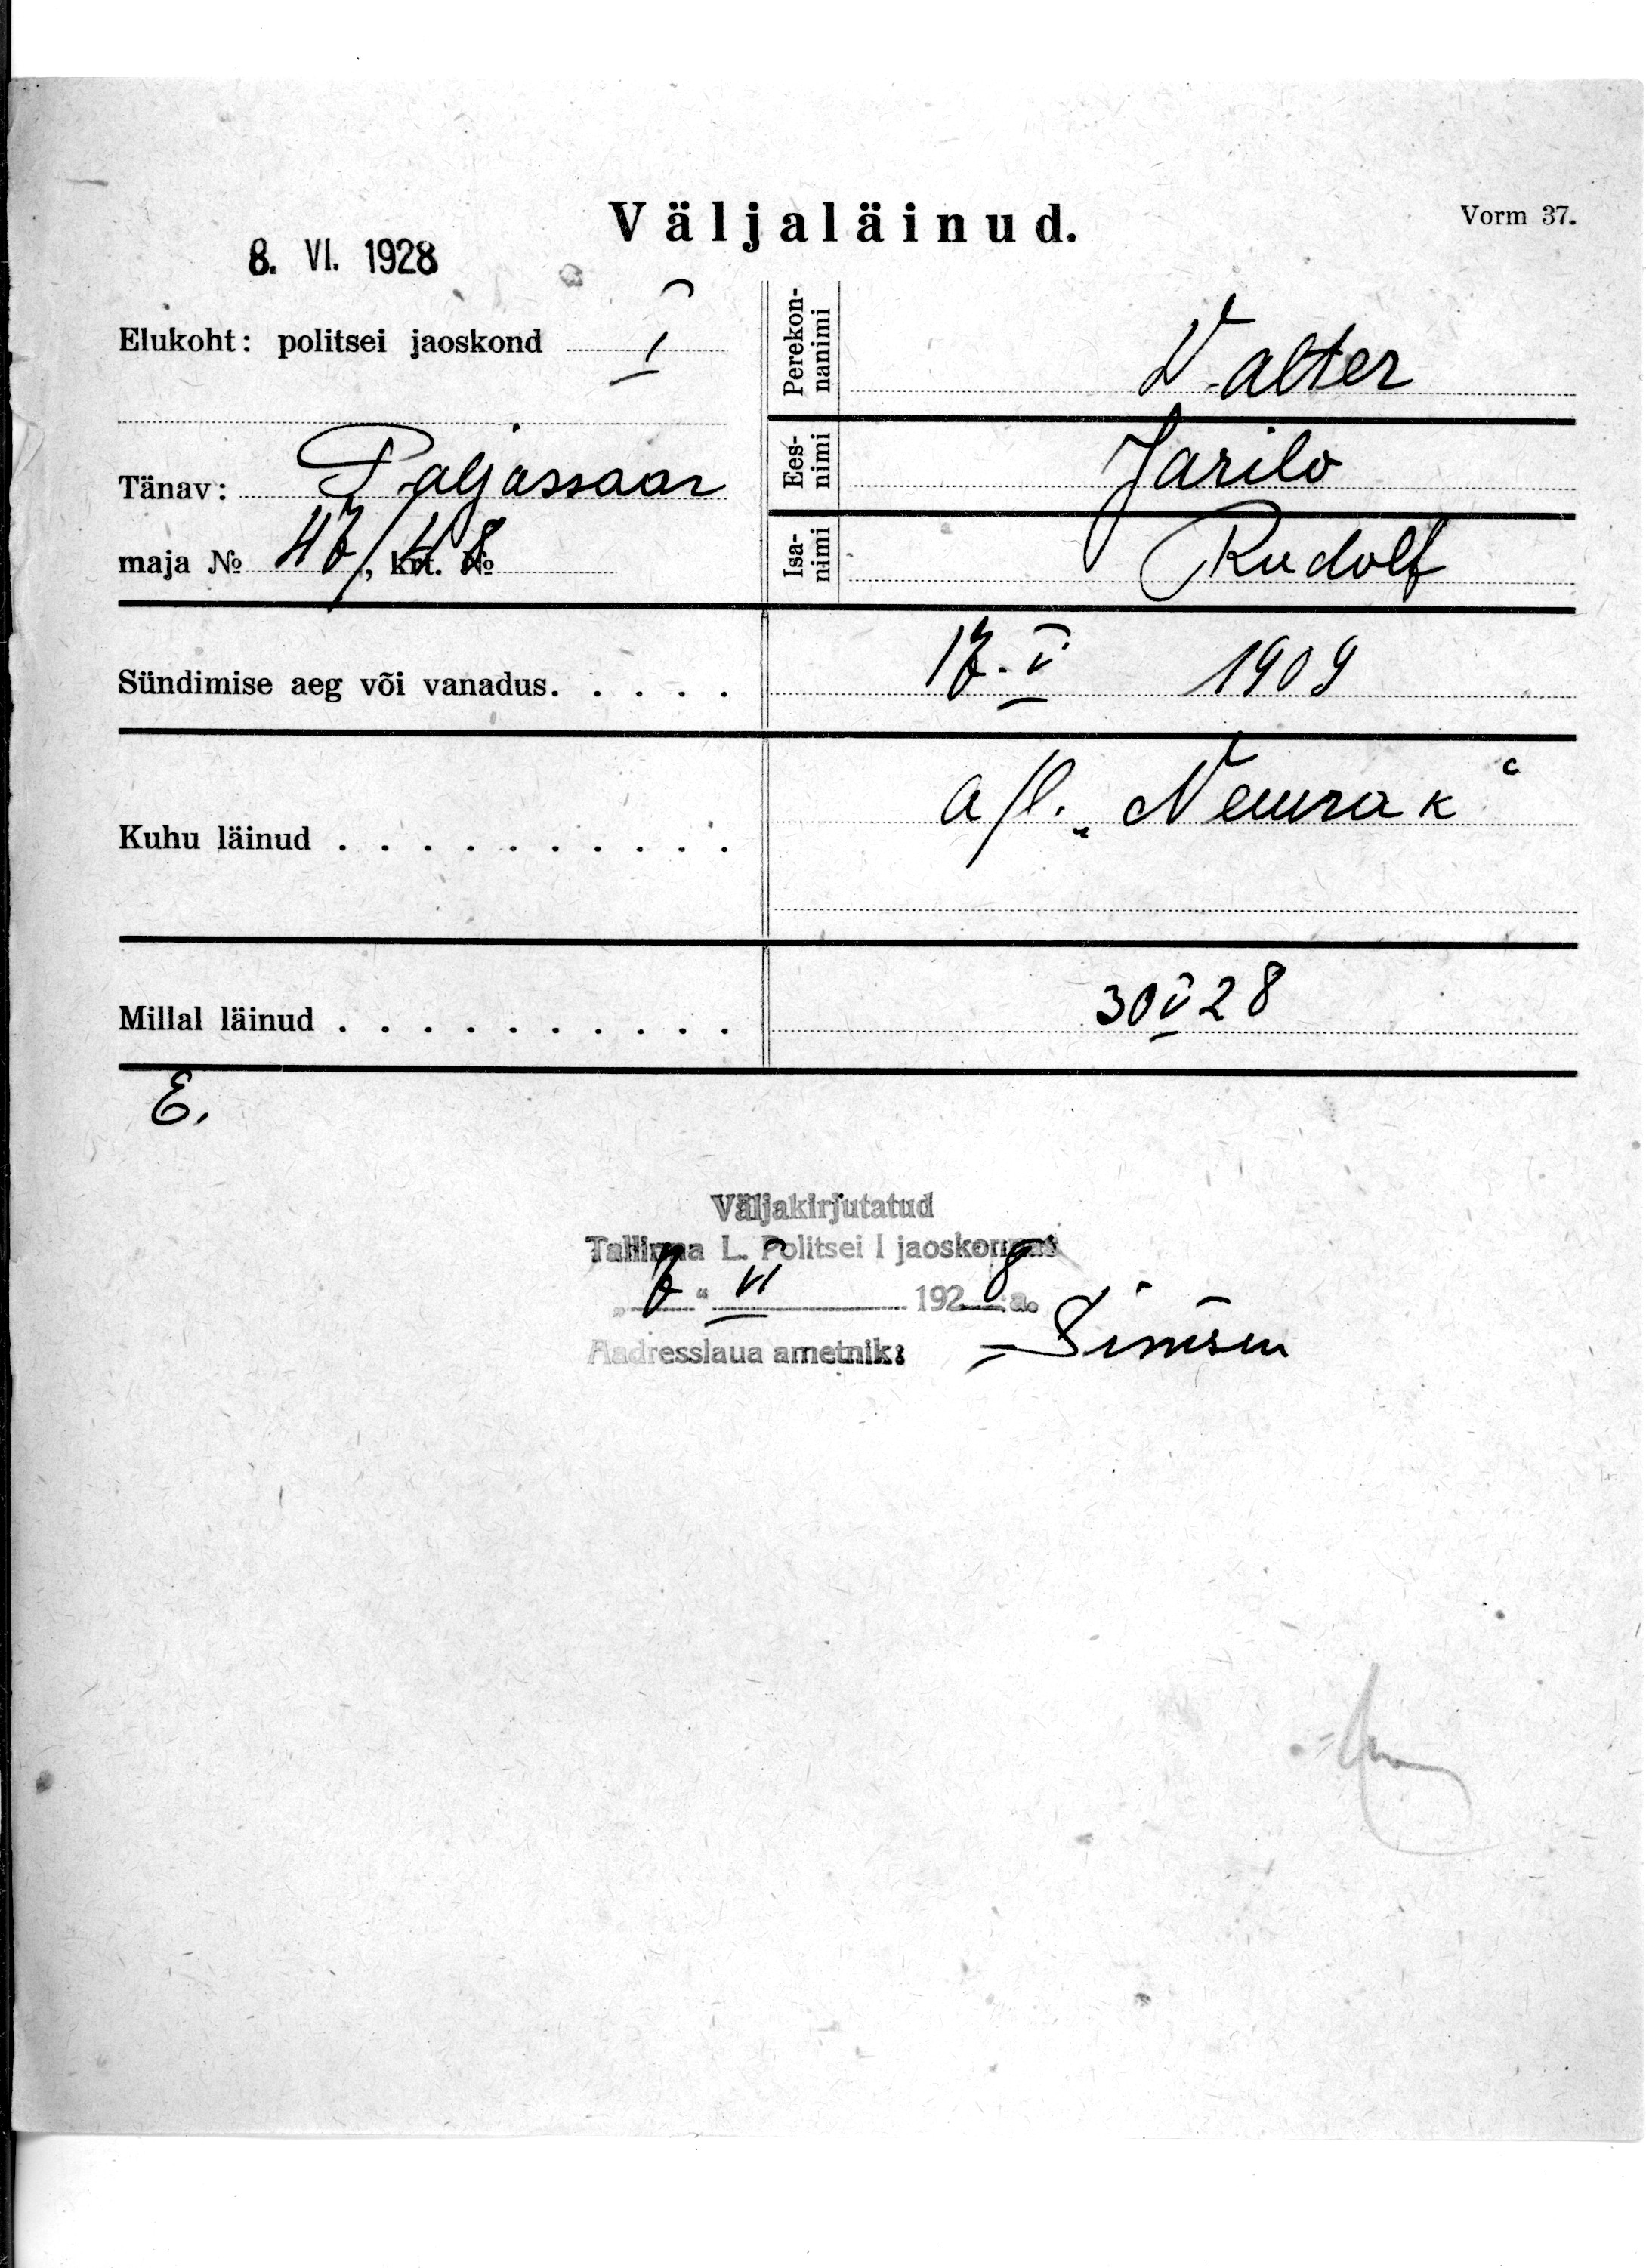 Väljaläinud.
Vorm 37.
8. VI. 1928
Elukoht: politsei jaoskond I
Perekonnanimi Valter
Tänav: Paljassaar
Eesnimi Jarilo
maja № 47/48, krt. №
Isanimi Rudolf
Sündimise aeg või vanadus. . . . . 17. V 1909
Kuhu läinud . . . . . . . . . . a/l.
Millal läinud . . . . . . . . . . 30 V 28
E.
Väljakirjutatud
Tallinna L. Politsei I jaoskonnas
„7“ VI 1928 a.
Aadresslaua ametnik: